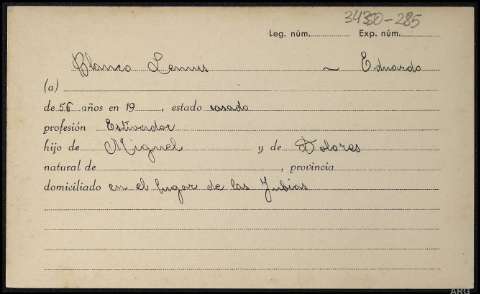 34350-285
Leg. núm. Exp. núm.
Blanco Lemus ~ Eduardo
(a)
de 56 años en 19 , estado casado
profesión Estivador
hijo de Miguel y de Dolores
natural de , provincia
domiciliado en el lugar de las Jubias
ARG